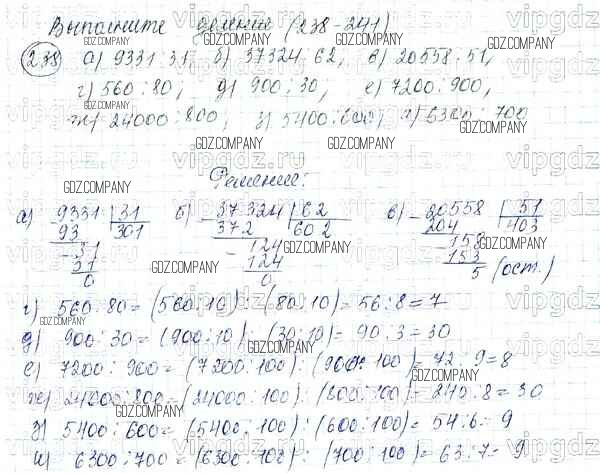 Выполните деление (238-241)
238 а) 9331:31, б) 37324:62, в) 20558:51,
г) 560:80, д) 900:30, е) 7200:900,
ж) 24000:800, з) 5400:600, и) 6300:700
Решение:
а) 9331 31 б) 37324 62 в) 20558 51
93 301 372 602 204 403
31 124 158
31 124 153
0 0 5 (ост.)
г) 560:80 = (560:10) : (80:10) = 56:8 = 7
д) 900:30 = (900:10) : (30:10) = 90:3 = 30
е) 7200:900 = (7200:100) : (900:100) = 72:9 = 8
ж) 24000:800 = (24000:100) : (800:100) = 240:8 = 30
з) 5400:600 = (5400:100) : (600:100) = 54:6 = 9
и) 6300:700 = (6300:100) : (700:100) = 63:7 = 9